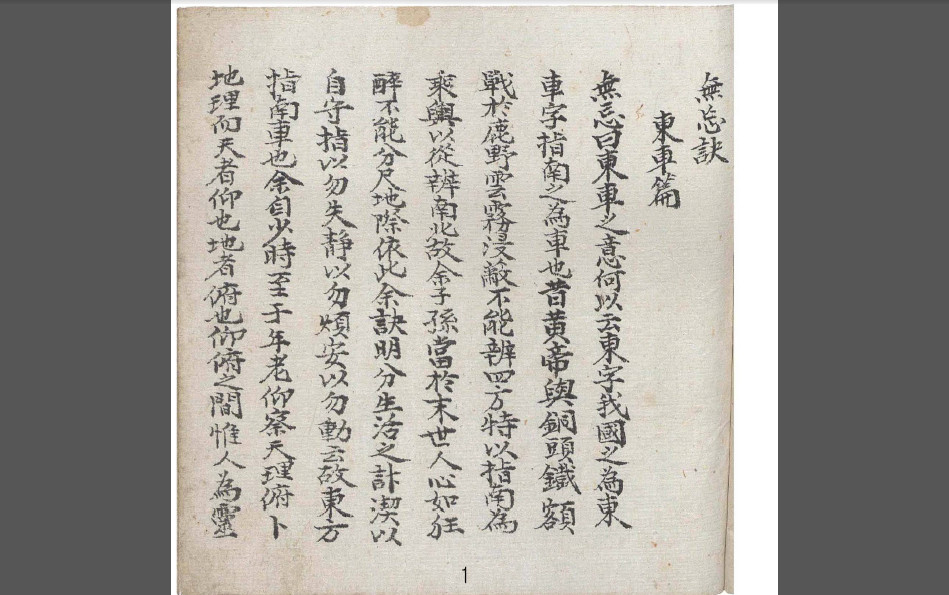 無忘訣
東車篇
無忘曰東車之意何以云東字我國之為東
車字指南之為車也昔黃帝與銅頭鐵額
戰於鹿野雲霧浸敵不能辨四方特以指南為
乘輿以從辨南北故余子孫當於末世人心如狂
醉不能分尺地際依此余訣明分生活之計潔以
自守指以勿失靜以勿煩安以勿動云故東方
指南車也余自少時至于年老仰察天理俯卜
地理而天者仰也地者俯也仰俯之間惟人為靈
1